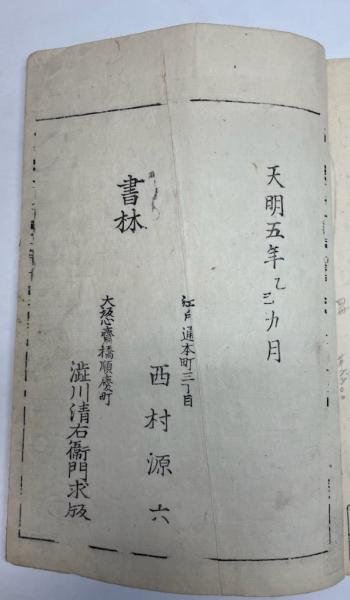 天明五年乙三九月
書林
江戸通本町三丁目
西村源六
大坂心齋橋順慶町
澁川清右衞門求板